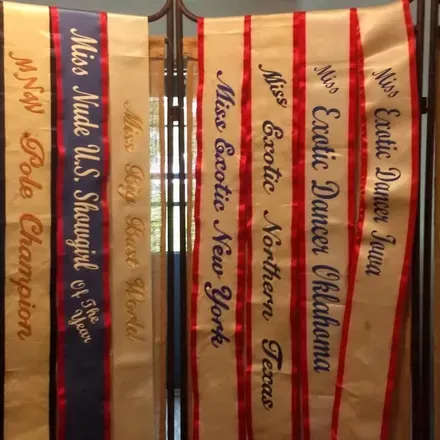 MNW Pole Champion
Miss Nude U.S. Showgirl Of The Year
Miss Big Bust World
Miss Exotic New York
Miss Exotic Northern Texas
Miss Exotic Dancer Oklahoma
Miss Exotic Dancer Iowa